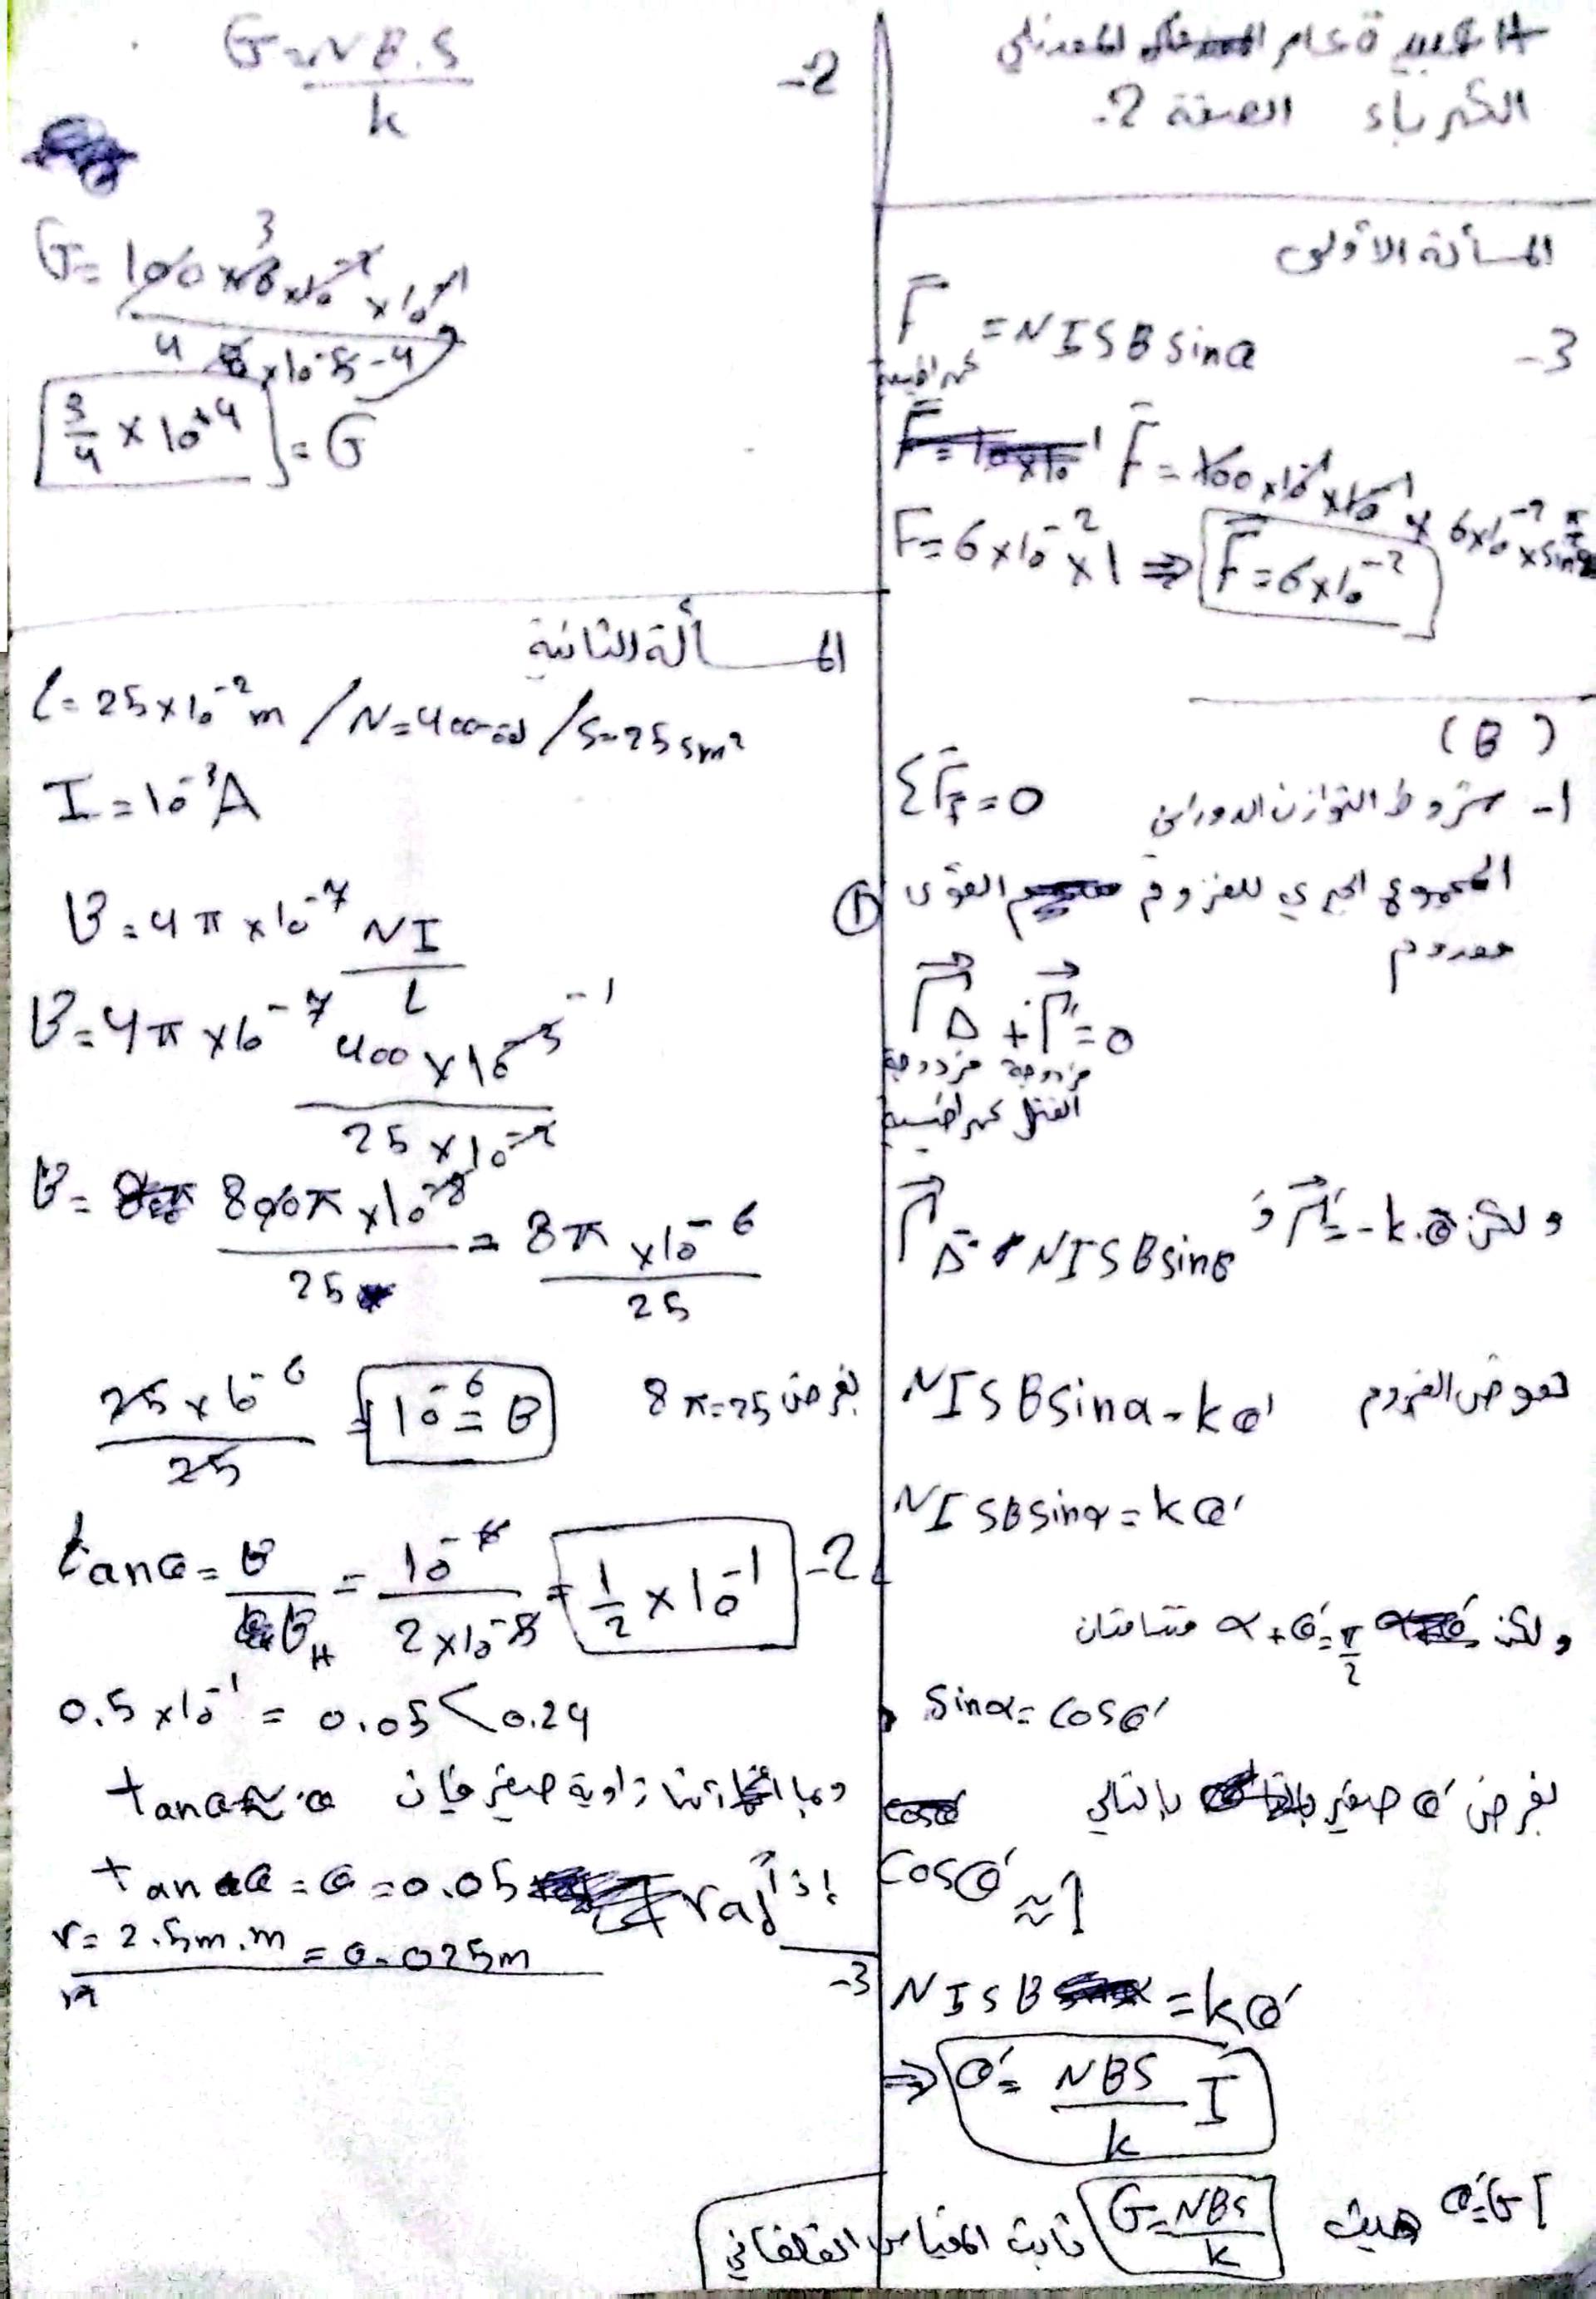 الكهرباء الصفحة 2.
المسألة الأولى
-3
F = NISB sinα
كهرطيسية
F = 100×10⁻¹×10⁻¹×6×10⁻²×sin π/2
F = 6×10⁻²×1 ⇒ F = 6×10⁻²
(B)
1- شروط التوازن الدوراني ΣΓ = 0
المجموع الجبري للعزوم القوى ①
معدوم
Γ⃗Δ + Γ⃗' = 0
مزدوجة مزدوجة
الفتل كهرطيسية
ولكن Γ⃗' = -k.θ' و Γ⃗Δ = NISB sinθ
نعوض العزوم NISB sinα - kθ'
NISB sinα = kθ'
ولكن α + θ' = π/2 متتامتان
sinα = cosθ'
بفرض θ' صغير بالتالي
cosθ' ≈ 1
NISB = kθ'
⇒ θ' = NBS/k I
θ' = G I حيث G = NBS/k ثابت المقياس الغلفاني
-2
G = N B.S / k
G = 100×6×10⁻²×10⁻¹ / 8×10⁻⁵
3/4 × 10⁺⁴ = G
المسألة الثانية
l = 25×10⁻² m / N = 400 لفة / S = 25 sm²
I = 10⁻³ A
B = 4π×10⁻⁷ NI / l
B = 4π×10⁻⁷ 400×10⁻³ / 25×10⁻²
B = 800π×10⁻⁸ / 25 = 8π×10⁻⁶ / 25
بفرض 8π = 25
25×10⁻⁶ / 25 = 10⁻⁶ = B
-2
tanθ = B / B_H = 10⁻⁶ / 2×10⁻⁵ = 1/2 × 10⁻¹
0.5×10⁻¹ = 0.05 < 0.24
وبما أننا زاوية صغير فإن tanθ ≈ θ
إذاً tanθ = θ = 0.05 rad
-3
r = 2.5 m.m = 0.025m